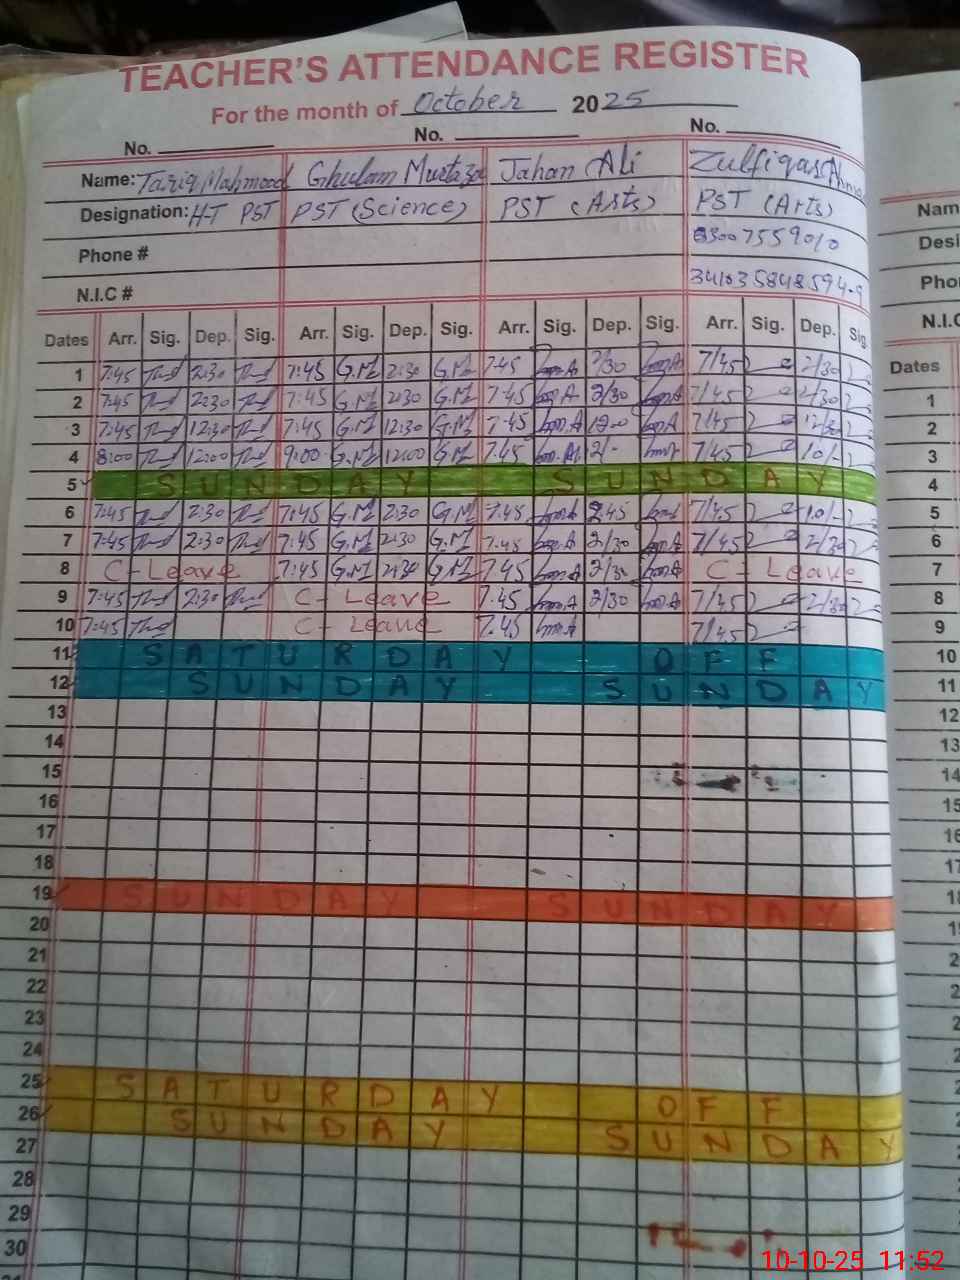 TEACHER'S ATTENDANCE REGISTER
For the month of October 2025
No. No. No.
Name: Tariq Mahmood Ghulam Murtaza Jahan Ali Zulfiqar Ahmed
Designation: HT PST PST (Science) PST (Arts) PST (Arts)
Phone # 03007559010
N.I.C #
Dates Arr. Sig. Dep. Sig. Arr. Sig. Dep. Sig. Arr. Sig. Dep. Sig. Arr. Sig. Dep. Sig.
1 7:45 2:30 7:45 G.M 2:30 G.M 7:45 2/30 7/45 2/30
2 7:45 2:30 7:45 G.M 2:30 G.M 7:45 2/30 7/45 2/30
3 7:45 12:30 7:45 G.M 12:30 G.M 7:45 7/45 12/30
4 8:00 12:00 9:00 G.M 12:00 G.M 7:45 7/45
5 SUNDAY SUNDAY
6 7:45 2:30 7:45 G.M 2:30 G.M 7:45 7/45
7 7:45 2:30 7:45 G.M 2:30 G.M 7:45 2/30 7/45 2/30
8 C-Leave 7:45 G.M 2:30 G.M 7:45 2/30 C-Leave
9 7:45 2:30 C-Leave 7:45 2/30 7/45 2/30
10 7:45 C-Leave 7:45 7/45
11 SATURDAY OFF
12 SUNDAY SUNDAY
13
14
15
16
17
18
19 SUNDAY SUNDAY
20
21
22
23
24
25 SATURDAY OFF
26 SUNDAY SUNDAY
27
28
29
30
Nam
Desi
Pho
N.I.C
Dates
1
2
3
4
5
6
7
8
9
10
11
12
13
14
15
16
17
18
10-10-25 11:52